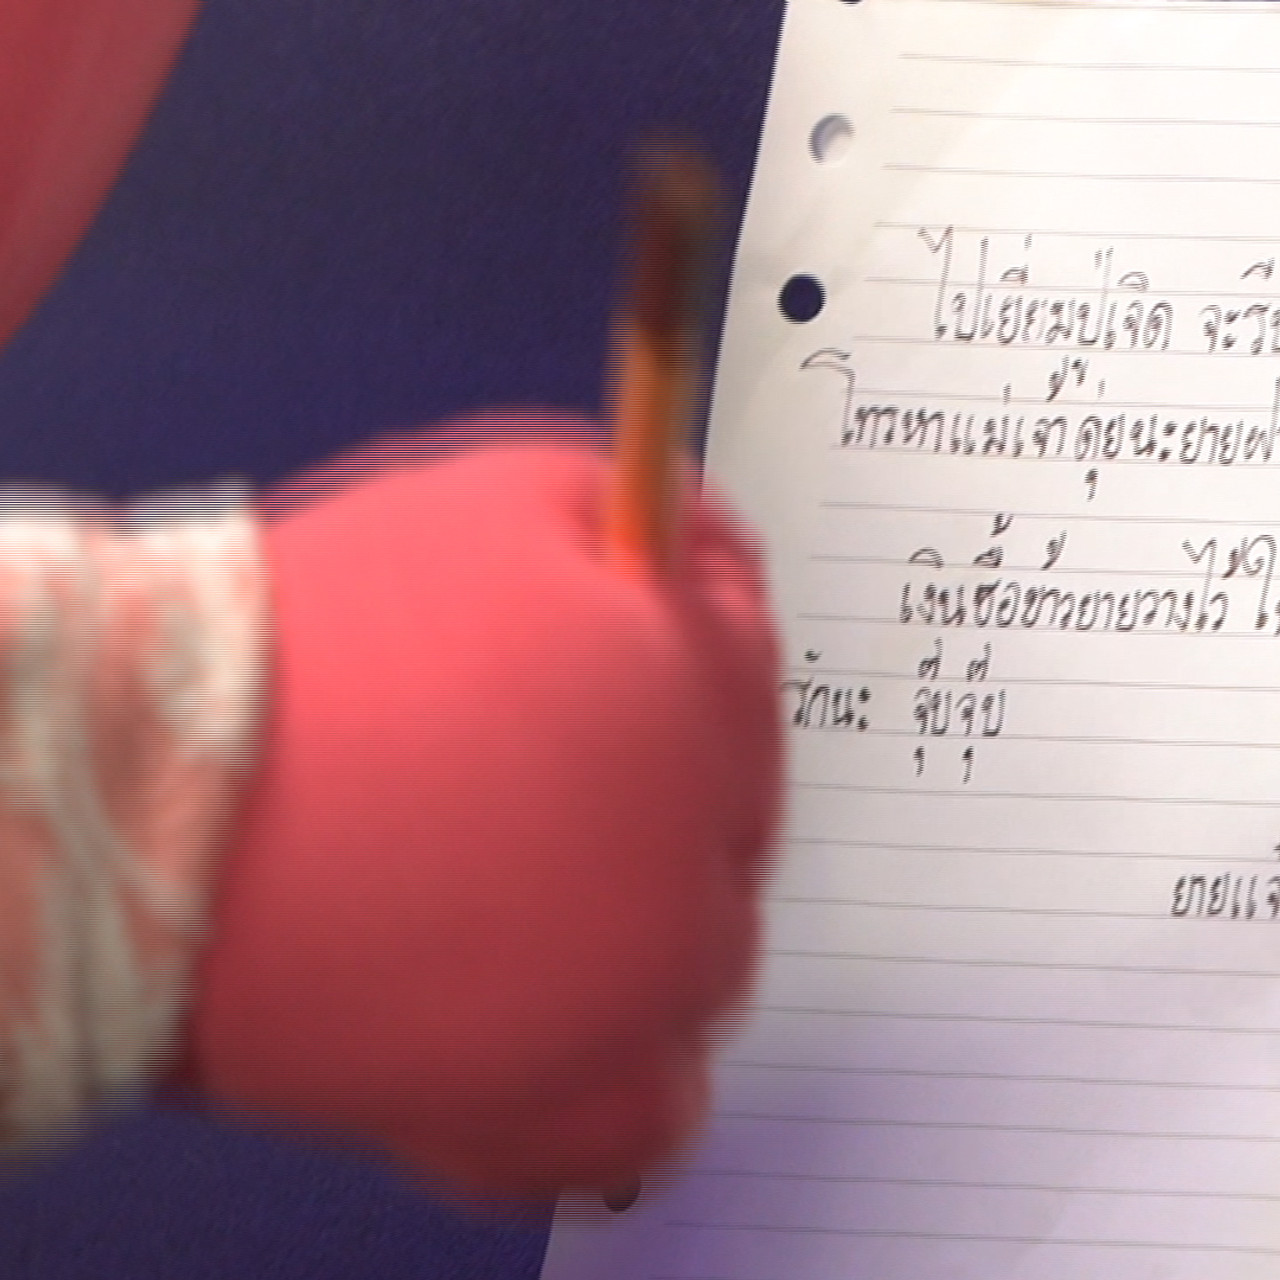 ไปเยี่ยมป่เจิด จะรีบ
โทรหาแม่เจ้าตุ๋ยนะยายฝ
เงินซื้อข้าวยายวางไว้ใ
รักนะ จุ๊บจุ๊บ
ยายแจ